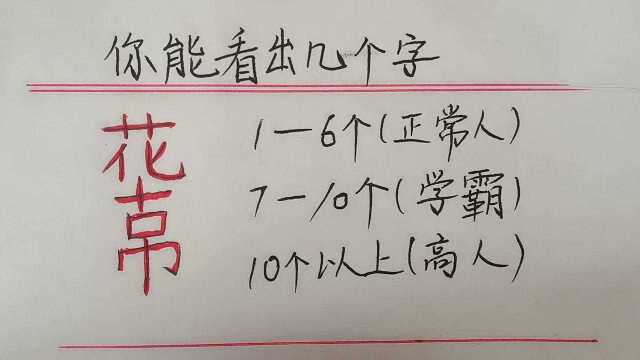 你能看出几个字
花
帅
1一6个(正常人)
7一10个(学霸)
10个以上(高人)